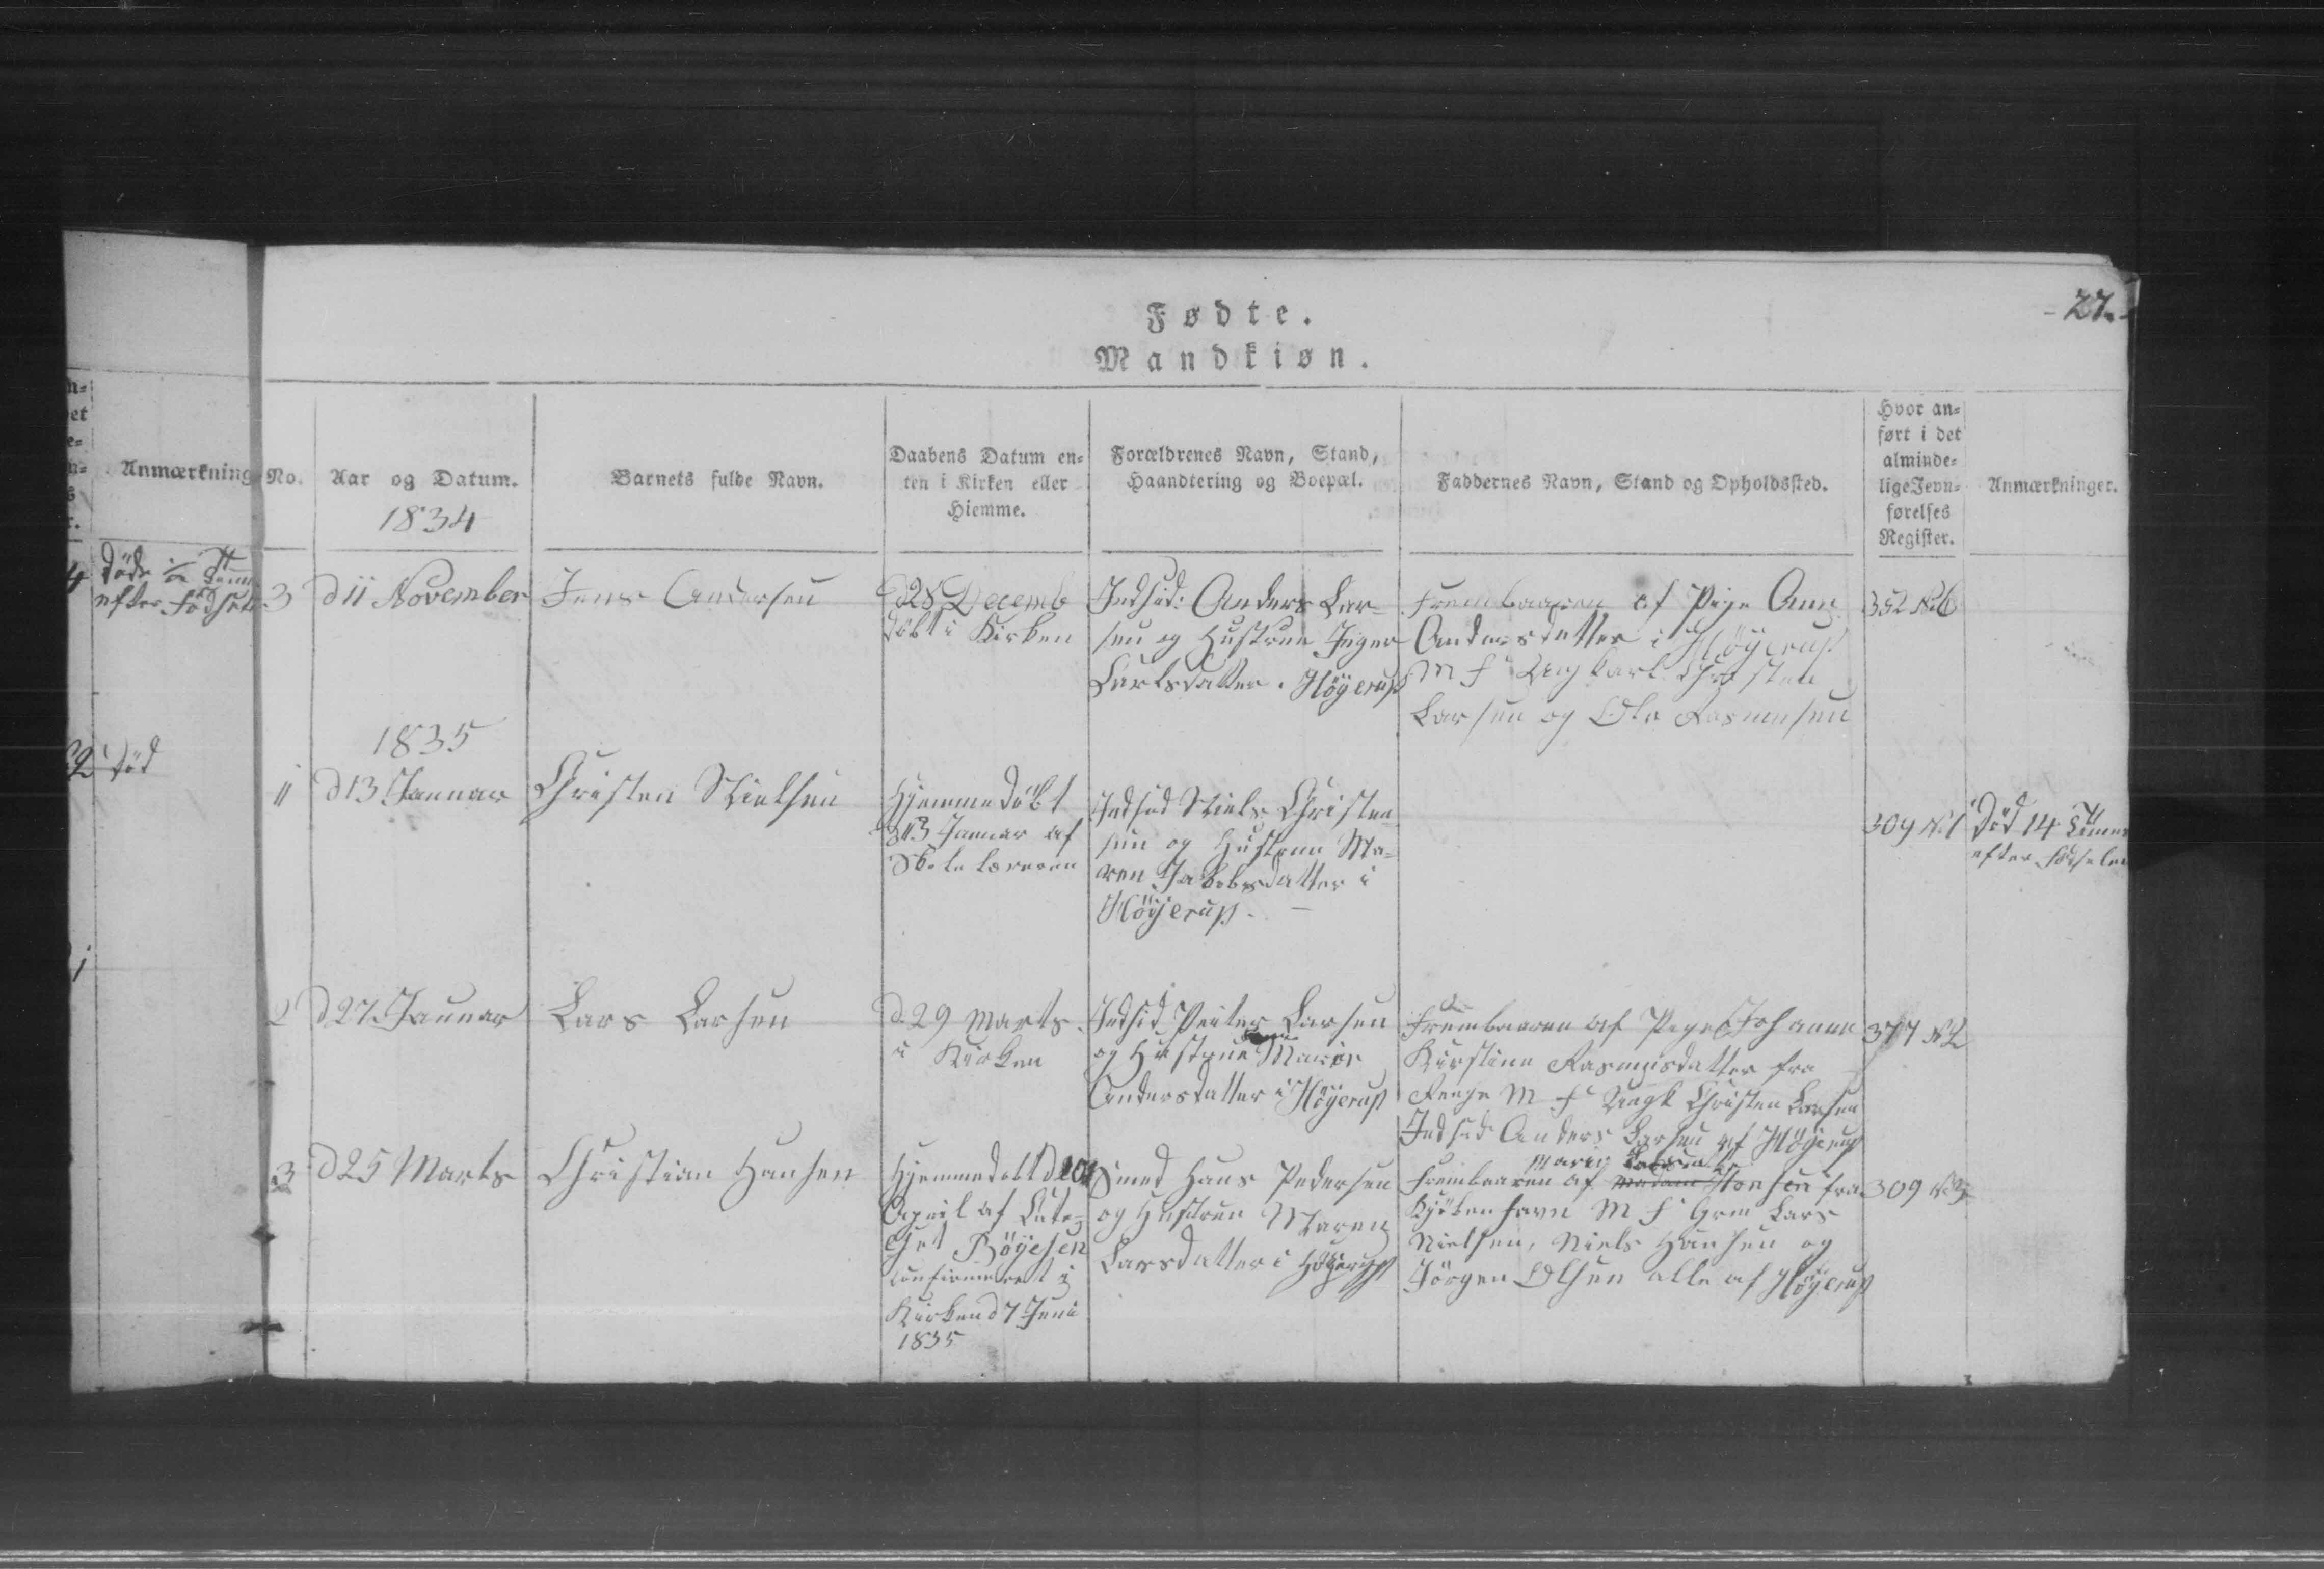 27.
Fødte.
Mandkiøn.
Anmærkning
No.
Aar og Datum.
1834
Barnets fulde Navn.
Daabens Datum en=
ten i Kirken eller
Hiemme.
Forældrenes Navn, Stand,
Haandtering og Boepæl.
Faddernes Navn, Stand og Opholdssted.
Hvor an=
ført i det
alminde=
lige Jevn=
førelses
Register.
Anmærkninger.
døde
efter Födselen
död
3
d 11 November
Jens Andersen
d 28 Decemb
döbt i Kirken
Indsid: Anders Lar-
sen og Hustrue Inger
Larsdatter. Höyerup
Frembaaren af Pige Ann
Andersdatter i Höyerup
M f Ungkarl Christen
Larsen og Ole Rasmusen
352 No 6
1835
1
d 13 Januar
Christen Nielsen
Hjemmedöbt
d 13 Januar af
Skolelæreren
Indsid Niels Christen-
sen og Hustrue Ma-
ren Jakobsdatter i
Höyerup. —
309 No 1
Död 14 Timer
efter Födselen
2
d 27 Januar
Lars Larsen
d. 29 Marts
i Kirken
Indsid Peiter Larsen
og Hustrue Maria
Andersdatter i Höyerup
Frembaaren af Pige Johanne
Kirstine Rasmusdatter fra
Renge M f Ungk Christen Larsen
Indsid Anders Larsen af Höyerup
377 No 2
3
d 25 Marts
Christian Hansen
Hjemmedöbt d
April af
Böyesen
confirmeret i
Kirken d 7 Juni
1835
Smed Hans Pedersen
og Hustrue Maren
Larsdatter i Höyerup
Maria
Frembaaren af Madam Hansen fra
Kjöbenhavn M f Grm Lars
Nielsen, Niels Hansen og
Jörgen Olsen alle af Höyerup
309 No 3